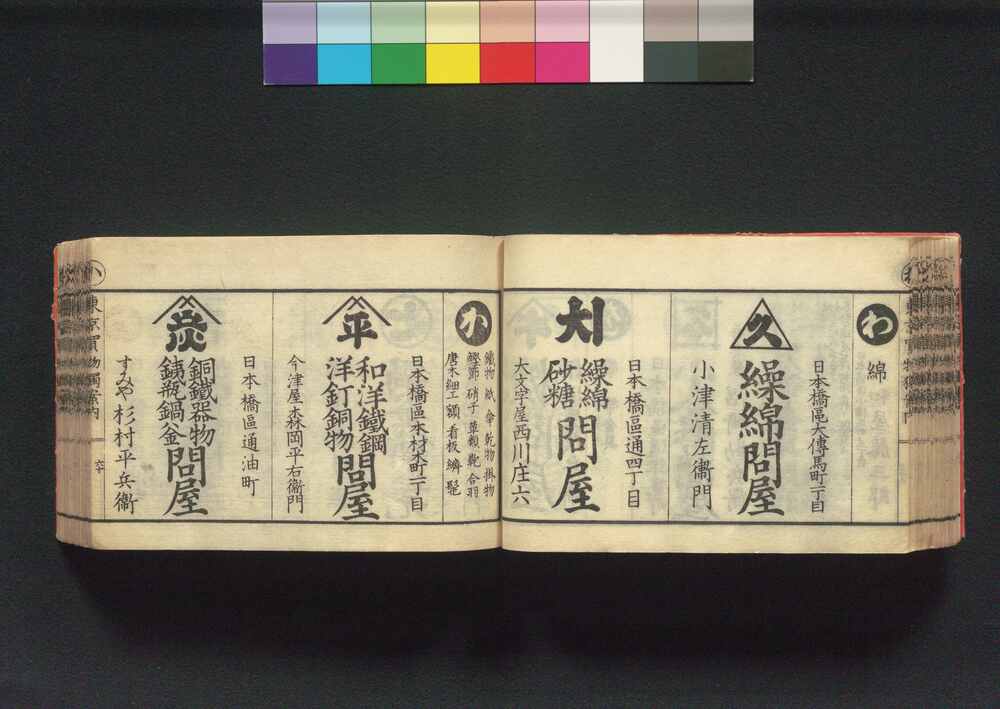 わ
綿
日本橋區大傳馬町一丁目
久
繰綿問屋
小津清左衞門
日本橋區通四丁目
繰綿
砂糖
問屋
大文字屋西川庄六
か
鐵物 紙 傘 乾物 掛物
鰹節 硝子 革類 鞄 合羽
唐木細工 額 看板
日本橋區本材木町一丁目
平
和洋鐵鋼
洋釘銅物
問屋
今津屋森岡平右衞門
日本橋區通油町
炭
銅鐵器物
銕瓶鍋釜
問屋
すみや杉村平兵衞
東京買物獨案内